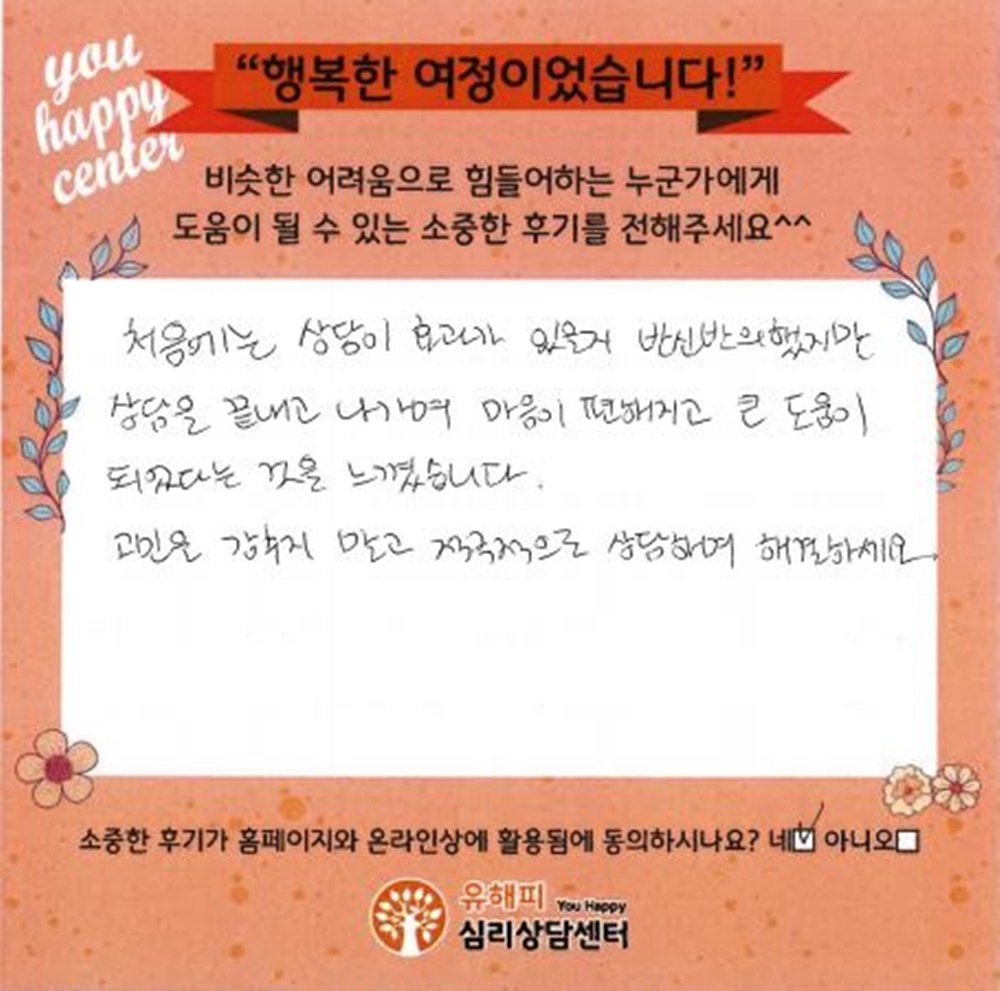 you
happy
center
“행복한 여정이었습니다!”
비슷한 어려움으로 힘들어하는 누군가에게
도움이 될 수 있는 소중한 후기를 전해주세요^^
처음에는 상담이 효과가 있을지 반신반의했지만
상담을 끝내고 나가며 마음이 편해지고 큰 도움이
되었다는 것을 느꼈습니다.
고민은 감추지 말고 적극적으로 상담하며 해결하세요.
소중한 후기가 홈페이지와 온라인상에 활용됨에 동의하시나요? 네☑ 아니오☐
유해피 You Happy
심리상담센터